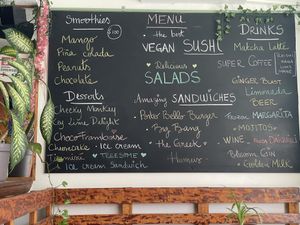 Smoothies
100
Mango
Piña colada
Peanuts
Chocolate
Desserts
Cheeky Monkey
Lime Delight
Choco Framboise
Cheesecake
ICE CREAM
Tiramisu
ICE CREAM Sandwich
MENU
the best
VEGAN SUSHI
Delicious
SALADS
Amazing SANDWICHES
Porto Bello Burger
Big Bang
the Greek
Humus
DRINKS
Matcha Latte
SUPER COFFEE
GINGER Bust
Limonada
BEER
FROZEN MARGARITA
MOJITOS
WINE
Blooom Gin
Golden Milk